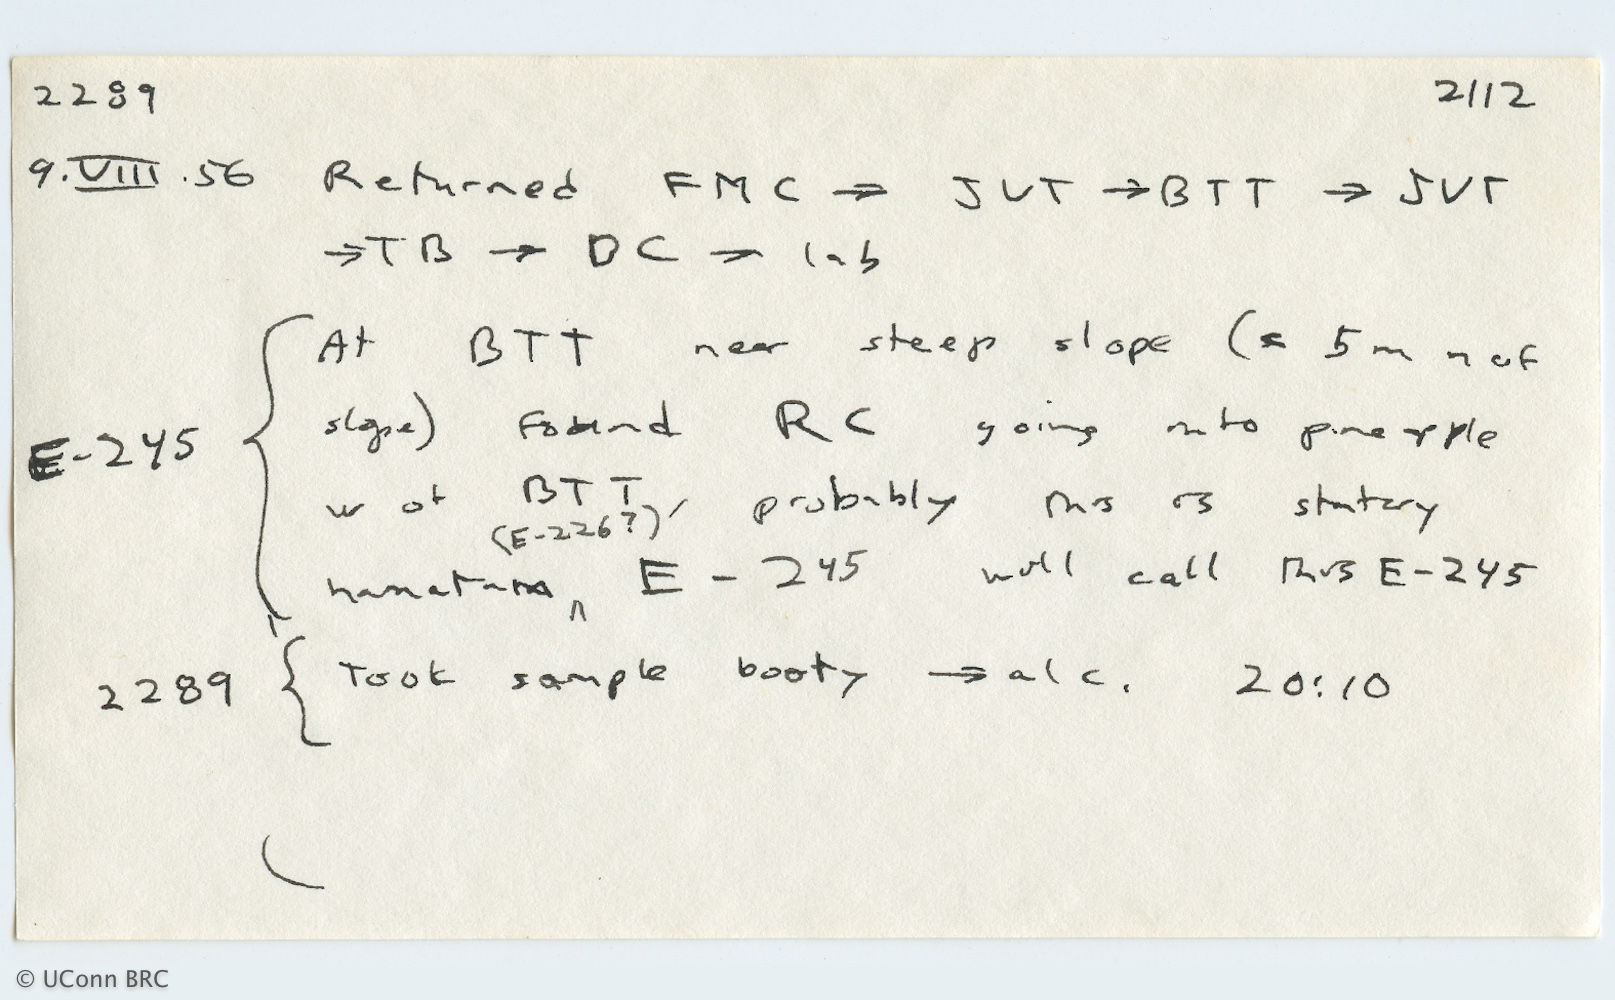 2289 2112
9.VIII.56 Returned FMC → JVT → BTT → JVT
→ TB → DC → lab
At BTT near steep slope (≤ 5m n of
E-245
slope) found RC going into pineapple
w of BTT, probably this is statary
(E-226?)
hamatum, E-245 will call this E-245
2289 Took sample booty → alc. 20:10
© UConn BRC